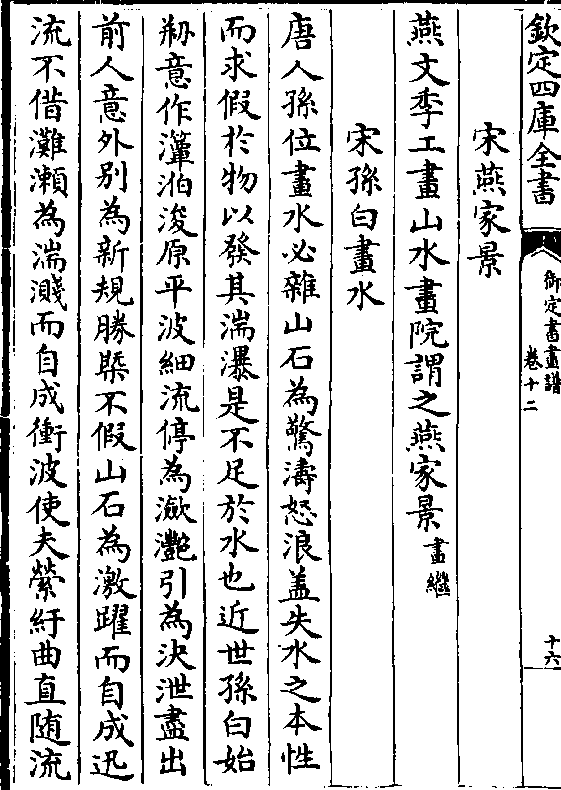 欽定四庫全書
御定書畫譜
卷十二
十六
宋燕家景
燕文季工畫山水畫院謂之燕家景畫繼
宋孫白畫水
唐人孫位畫水必雜山石為驚濤怒浪蓋失水之本性
而求假於物以發其湍瀑是不足於水也近世孫白始
刱意作潬洦浚原平波細流停為瀲灔引為決泄盡出
前人意外别為新規勝槩不假山石為激躍而自成迅
流不借灘瀨為湍濺而自成衝波使夫縈紆曲直随流